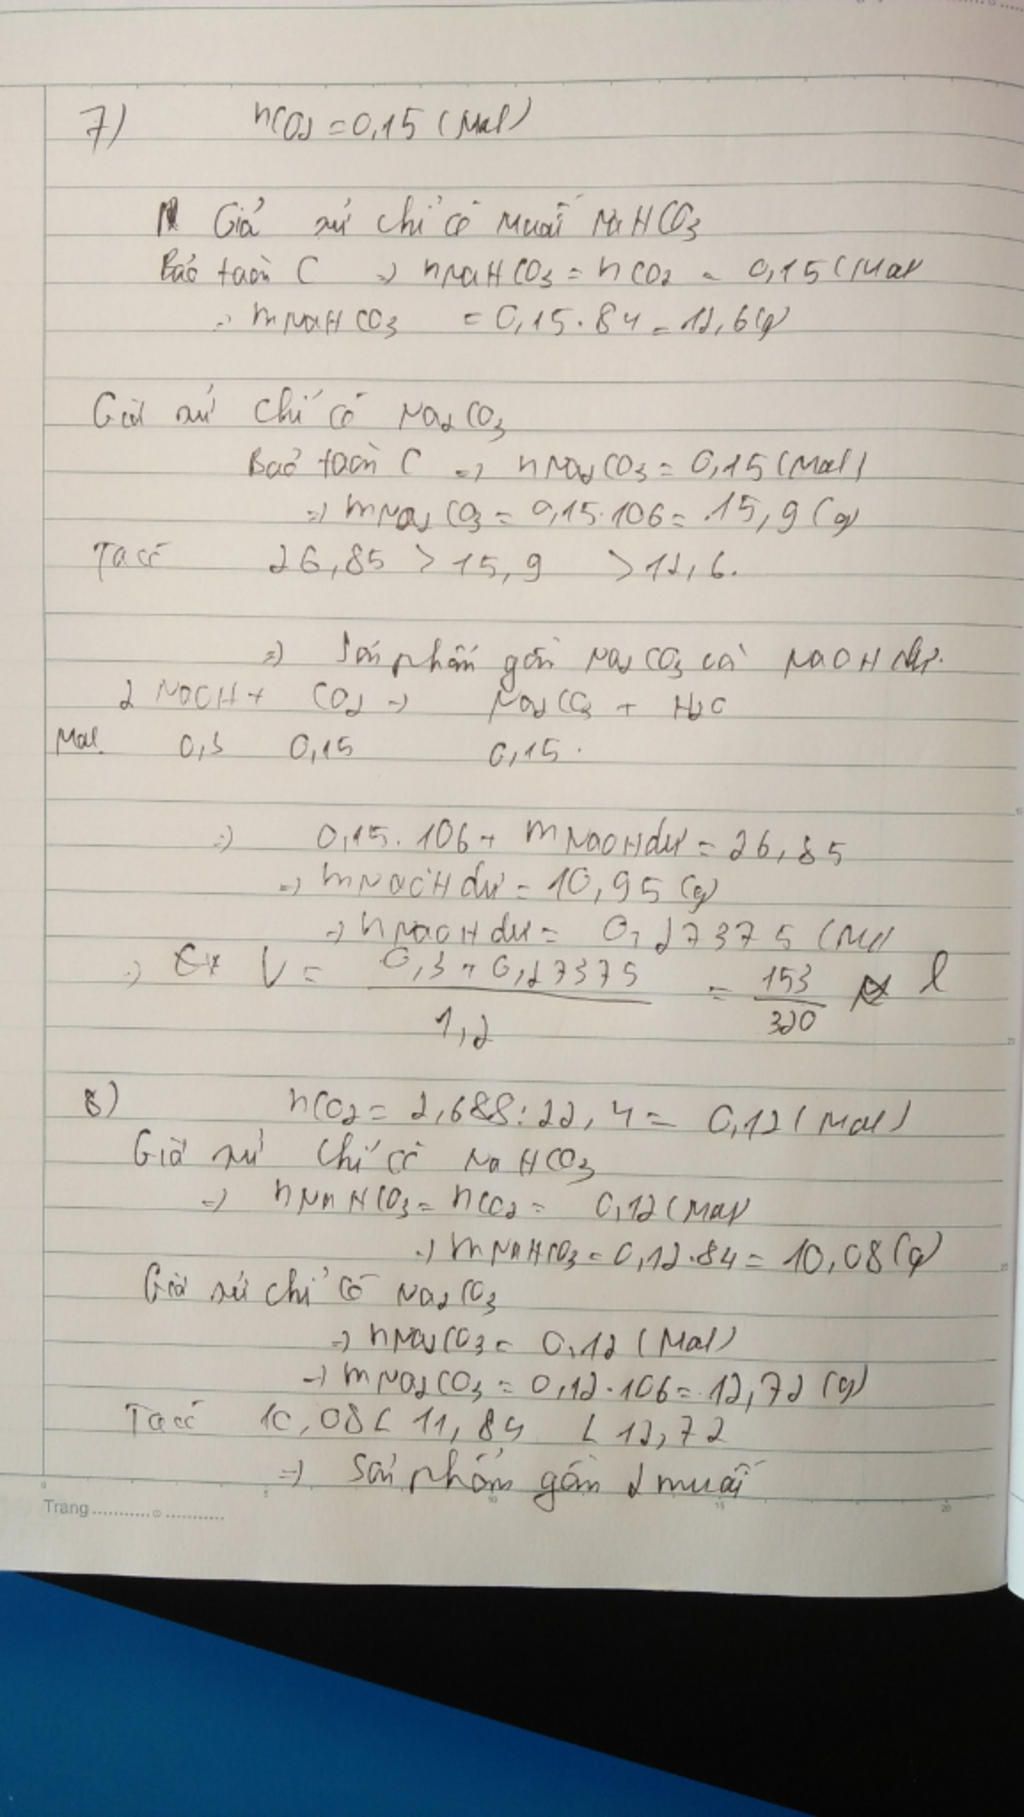 7) nCO2 = 0,15 (mol)
Giả sử chỉ có muối NaHCO3
Bảo toàn C => nNaHCO3 = nCO2 = 0,15 (mol)
=> mNaHCO3 = 0,15.84 = 12,6 (g)
Giả sử chỉ có Na2CO3
Bảo toàn C => nNa2CO3 = 0,15 (mol)
=> mNa2CO3 = 0,15.106 = 15,9 (g)
Ta có 26,85 > 15,9 > 12,6.
=> Sản phẩm gồm Na2CO3 và NaOH dư.
2NaOH + CO2 -> Na2CO3 + H2O
Mol 0,3 0,15 0,15.
=> 0,15.106 + mNaOH dư = 26,85
=> mNaOH dư = 10,95 (g)
=> nNaOH dư = 0,27375 (mol
=> V = 0,3 + 0,27375 / 1,2 = 153 / 320 l
8) nCO2 = 2,688 : 22,4 = 0,12 (mol)
Giả sử chỉ có NaHCO3
=> nNaHCO3 = nCO2 = 0,12 (mol)
=> mNaHCO3 = 0,12.84 = 10,08 (g)
Giả sử chỉ có Na2CO3
=> nNa2CO3 = 0,12 (mol)
=> mNa2CO3 = 0,12.106 = 12,72 (g)
Ta có 10,08 < 11,84 < 12,72
=> Sản phẩm gồm 2 muối
Trang